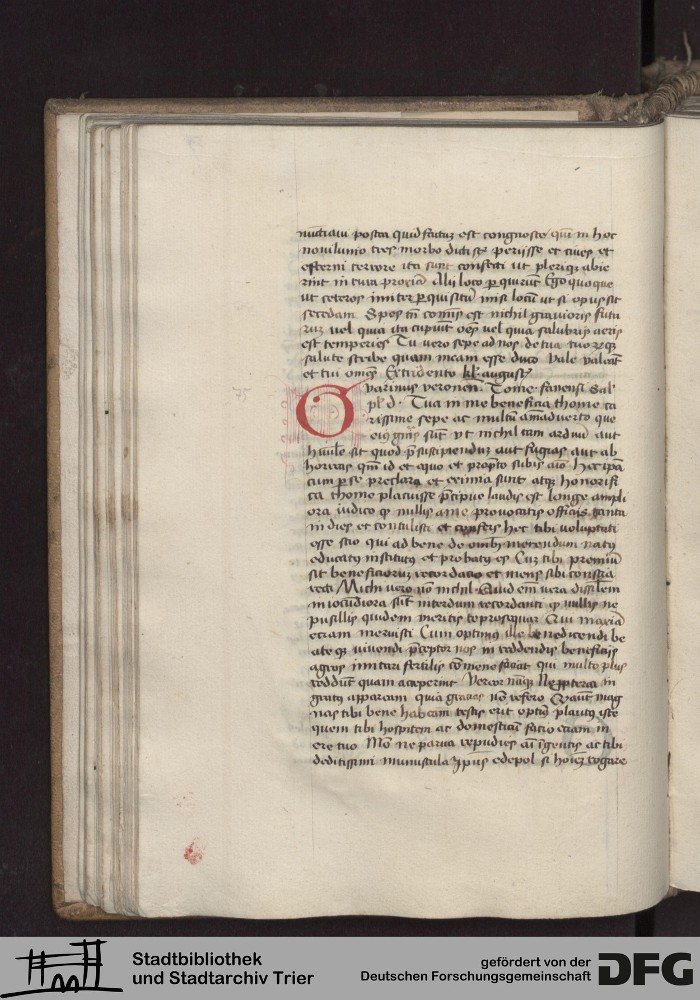 nuntiatu postea quid factuz est congnosce qui in hoc
nouilunio tres morbo dicti st perijsse et ciues et
externi terrore ita sunt consteti ut pleriqz abie
rint in tuta alij loco perquirunt Ego quoque
ut ceteros imiter perquisitum misi locum ut si opus sit
secedam Spes tn est nichil grauioris futu
ruz vel quia ita cupiut oes vel quia salubris aeris
est temperies Tu vero sepe ad nos de tua tuorzqz
salute scribe quam meam esse duco Vale valeat
et tui omes Ex tridento kl augusti
Gvarinus veronen Tome fanensi Sal
pl d Tua in me beneficia thome ca
rissime sepe ac multu aiaduerto que
eiq gnis sut vt nichil tam arduu aut
huile sit quod p suscipiendu aut fugias aut ab
horreas qm id et equo et propto subis aio hec ipa
cum p se preclara et eximia sunt atqz honorifi
ca thome placuisse precipue laudis est longe ampli
ora iudico qz nullis a me prouocatus officijs tanta
in dies et contulisti et confers hec tibi voluptati
esse scio qui ad bene de omibz merendum natq
educatq institutq et probatq es Cuz tibi premiu
sit beneficioruz recordacio et mens sibi conscia
recti Michi vero no nichil Quid em vera
iocudiora sut interdum recordanti qz nullis ne
pusillis quidem meritis te prosequar Qui maxia
eciam meruisti Cum optimus ille benedicendi be
ateqz viuendi preceptor nos in reddendis beneficijs
agros imitari fertilis comonefaciat qui multo plus
reddut quam acceperint Vereor in
gratq appaream quia gracias no refero Qaut mag
nas tibi bene habeam testis erit optiq plautq iste
quem tibi hospitem ac domesticu facio eciam in
ere tuo Mo ne parua repudies au ingentis ac tibi
deditissimi munuscula edepol si hoiez rogare
Stadtbibliothek
und Stadtarchiv Trier
gefördert von der
Deutschen Forschungsgemeinschaft
DFG